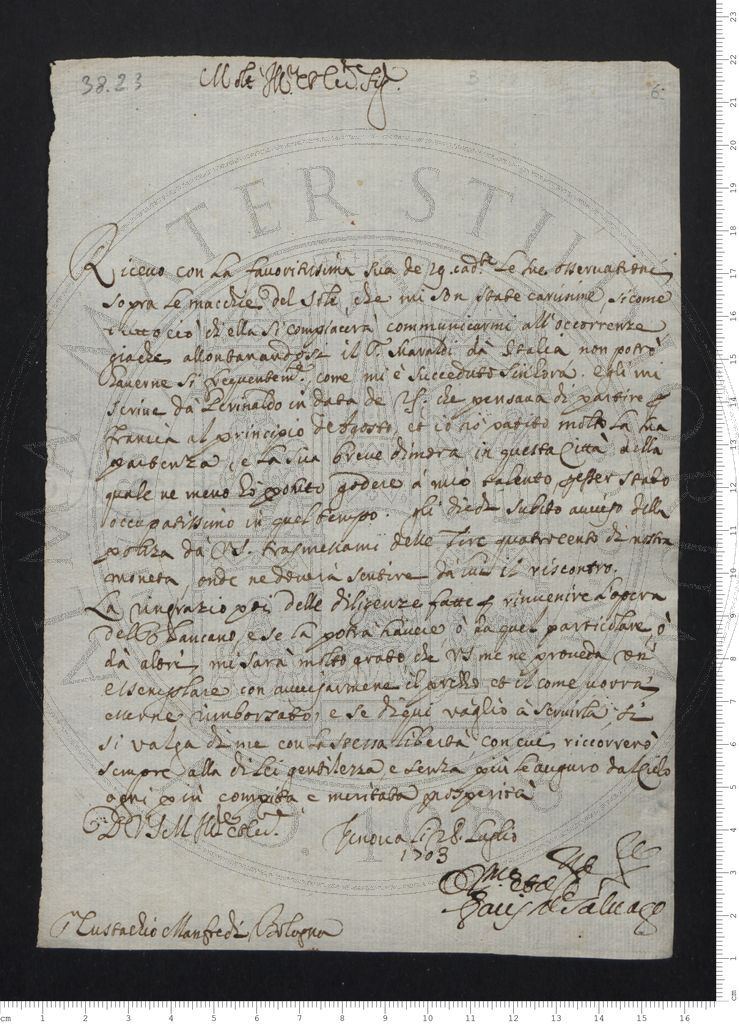 38.23
6.
Molt' Ill.re et Ecc.te Sig.r
Ricevo con la favoritissima sua de 19. cad.te le sue osservationi
sopra le macchie del Sole, che mi son state carissime, si come
tutto ciò ch'ella si compiacerà communicarmi all'occorrenze
giache allontanandosi il S.r Maraldi dà Italia non potrò
haverne si frequentem.te come mi è succeduto sin'hora. Egli mi
scrive dà Perinaldo in data de 25. che pensava di partire p
Francia al principio de Agosto, et io hò patito molto la sua
partenza, e la sua breve dimora in questa Città della
quale ne meno hò potuto godere à mio talento p esser stato
occupatissimo in quel tempo. gli diedi subito aviso della
poliza dà VS. trasmessami delle lire quatrocento di nostra
moneta, onde ne doverà sentire dà lui il riscontro.
La ringrazio poi delle diligenze fatte p rinvenire l'opera
dell' Blancano, e se la potrà havere ò da quel particolare, ò
dà altri mi sarà molto grato che VS me ne proveda un'
essemplare con avvisarmene il prezzo et il come vorrà
esserne rimborsato, e se di quì vaglio à servirla
si valga di me con la stessa libertà con cui riccorrerò
sempre alla di lei gentilezza, e senza più le auguro dal Cielo
ogni più compita e meritata prosperità
D VS M Ill.re et Ecc.te
Genova li 28. Luglio
1703
Salvago
Eustachio Manfredi Bologna
ALMA MATER STUDIORUM
A.D. 1088